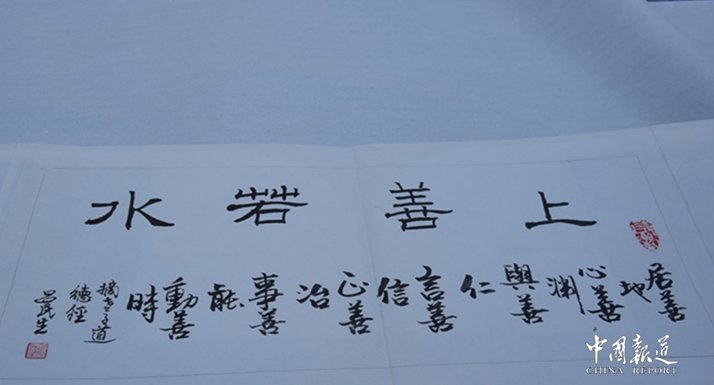 上善若水
居善
地
心善
淵
與善
仁
言善
信
正善
治
事善
能
動善
時
摘老子道
德經
中國報道
CHINA REPORT